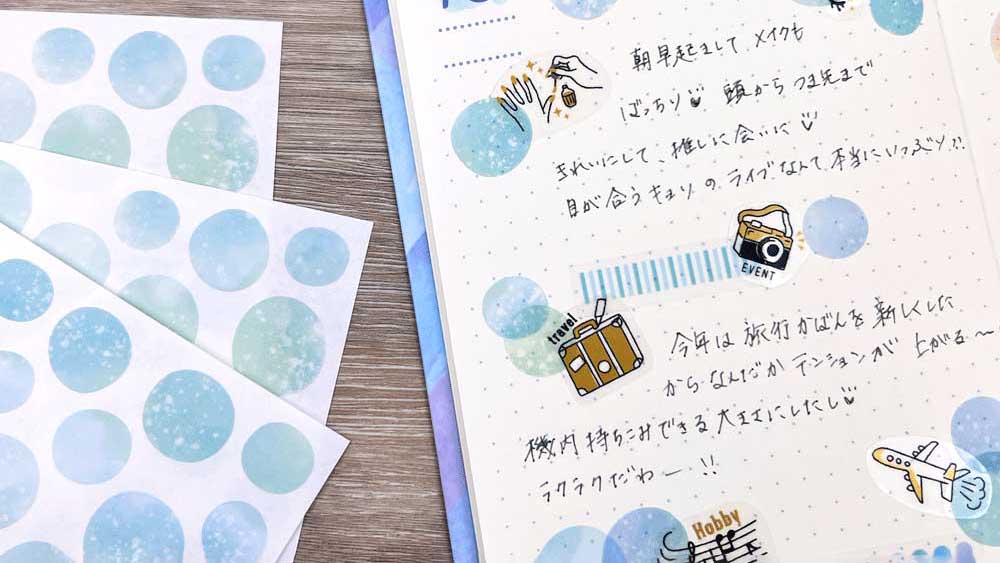 朝早起きして、メイクも
ばっちり 頭からつま先まで
きれいにして、推しに会いに
目が合うキョリのライブなんて、本当にいつぶり!!
EVENT
travel
今年は旅行かばんを新しくした
からなんだかテンションが上がる〜
機内持ちこみできる大きさにしたし
ラクラクだわー!!
Hobby